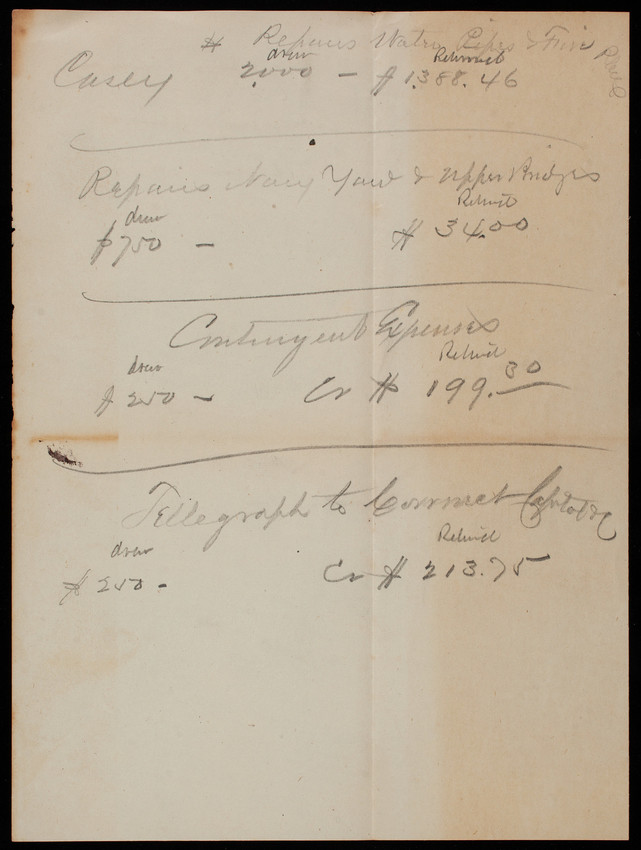 Repairs Water Pipes & Fire
drew Returned
Casey $ 2000 - $ 1388.46
Repairs Navy Yard & Upper Bridges
drew Refund
$ 750 - $ 34.00
Contingent Expenses
drew Refund
$ 250 - Cr $ 199.30
Tellegraph to Connect Capitol &c
drew Refund
$ 250 - Cr $ 213.75